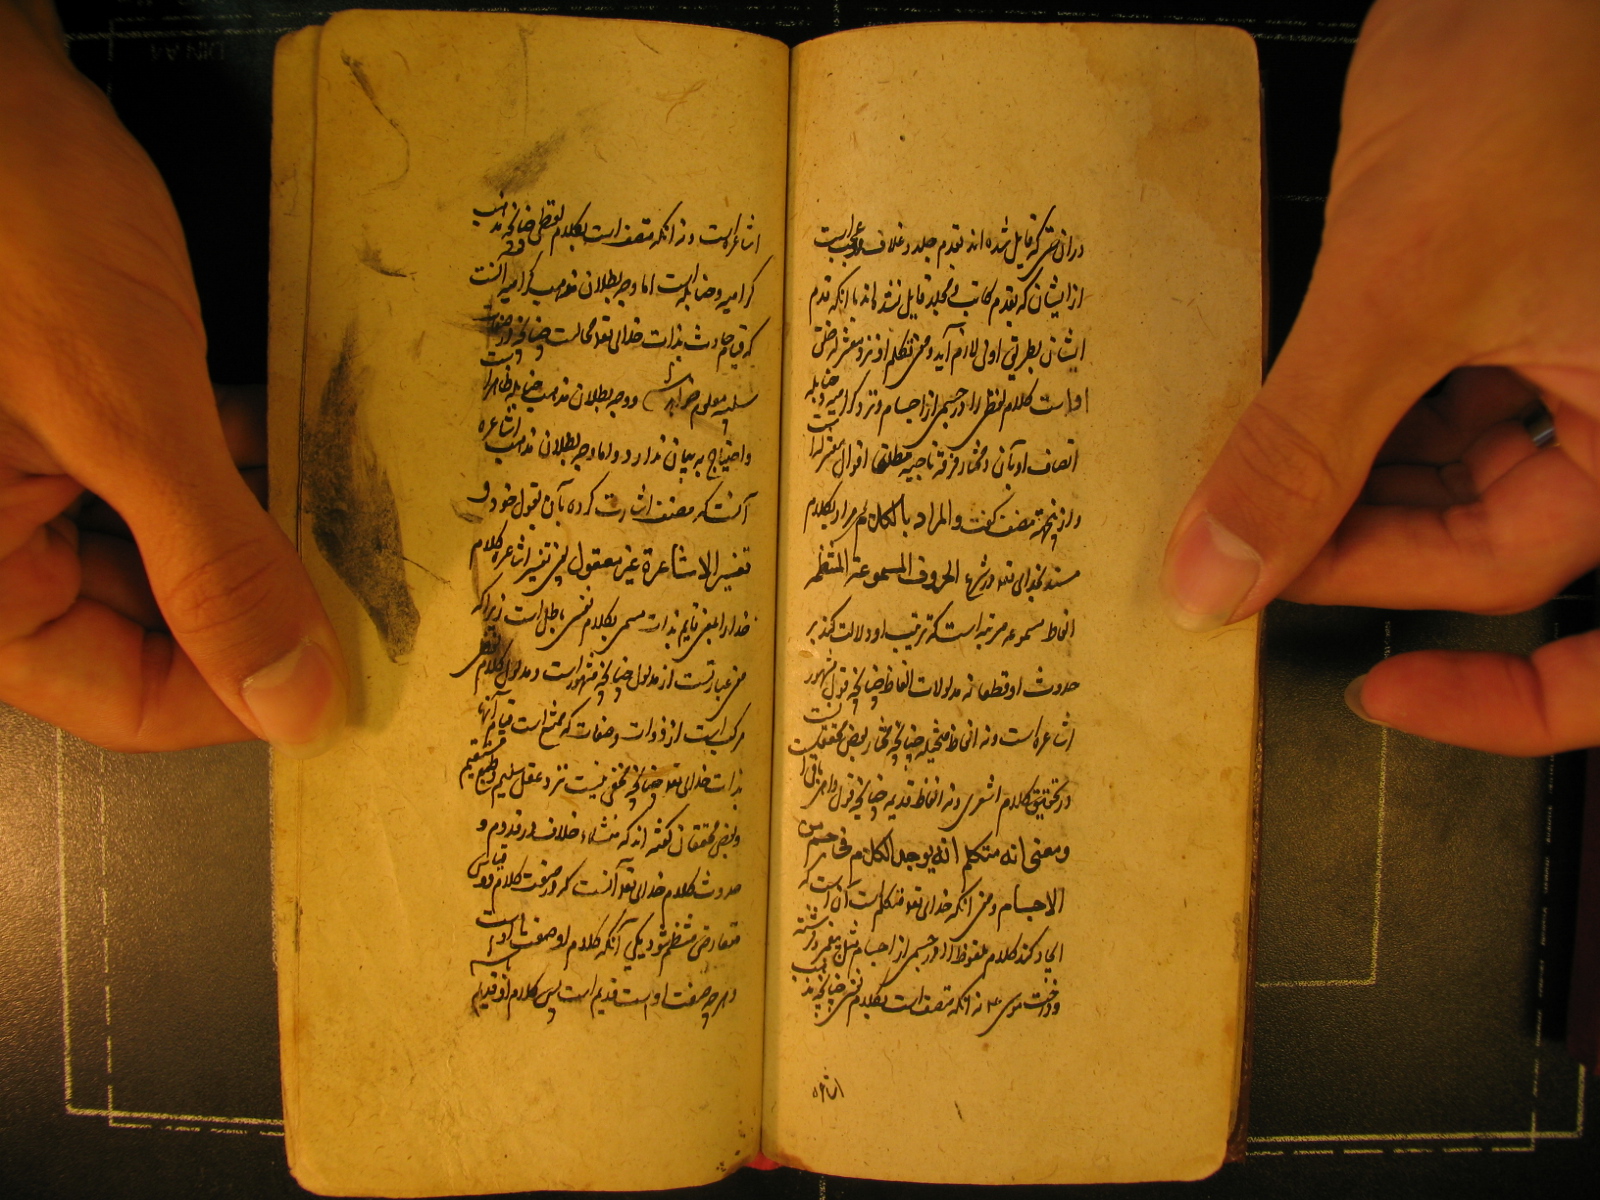 دران متقی که قایل شده اند بقدم جلد و غلاف و عجب است
از ایشان که بقدم کاتب و مجلد قایل نشده اند با آنکه قدم
ایشان بطریق اولی لازم آید و معنی تکلم او نزد معتزله خلق
او است کلام لفظی را در جسمی از اجسام و نزد کرامیه و حنابله
اتصاف او بآن و مختار فرقه ناجیه مطلقا قول معتزله است
و از ینجهة مصنف گفت والمراد بالکلام مراد بکلام
مسند بخدای تعه در شرع الحروف المسموعة المنتظمة
الفاظ مسموعه مرتبه است که ترتیب او دلالت کند بر
حدوث او قطعا نه مدلولات الفاظ چنانچه قول مشهور
اشاعره است و نه الفاظ متخیله چنانچه مختار بعض محققانست
در تحقیق کلام اشعری و نه الفاظ قدیمه چنانچه قول
ومعنی انه متکلم انه یوجد الکلام فی جسم من
الاجسام و معنی آنکه خدای تعه متکلم است آن است که
ایجاد کند کلام ملفوظ را در جسمی از اجسام مثل پیغمبر و فرشته
و درخت موسی ع نه آنکه متصف است بکلام نفسی چنانچه مذهب
اشاعره
اشاعره است و نه آنکه متصف است بکلام لفظی چنانچه مذهب
کرامیه و حنابله است اما وجه بطلان مذهب کرامیه آنست
که قیام حادث بذات خدای تعه محالست چنانچه در صفات
سلبیه معلوم خواهد شد و وجه بطلان مذهب حنابله ظاهر است
و احتیاج به بیان ندارد و اما وجه بطلان مذهب اشاعره
آنست که مصنف اشارت کرده بآن بقول خود و
تفسیر الاشاعرة غیر معقول یعنی تفسیر اشاعره کلام
خدا را بمعنی قایم بذات مسمی بکلام نفسی باطل است زیرا که
معنی عبارتست از مدلول چنانچه مشهور است و مدلول کلام لفظی
مرکب است از ذوات و صفات که ممتنع است قیام آنها
بذات خدای تعه چنانچه مخفی نیست نزد عقل سلیم و طبع مستقیم
و بعض محققان گفته اند که منشاء خلاف در قدم و
حدوث کلام خدای تعه آنست که در صفت کلام دو قیاس
متعارض منتظم شود یکی آنکه کلام او صفت او است
و هر چه صفت او ست قدیم است پس کلام او قدیم